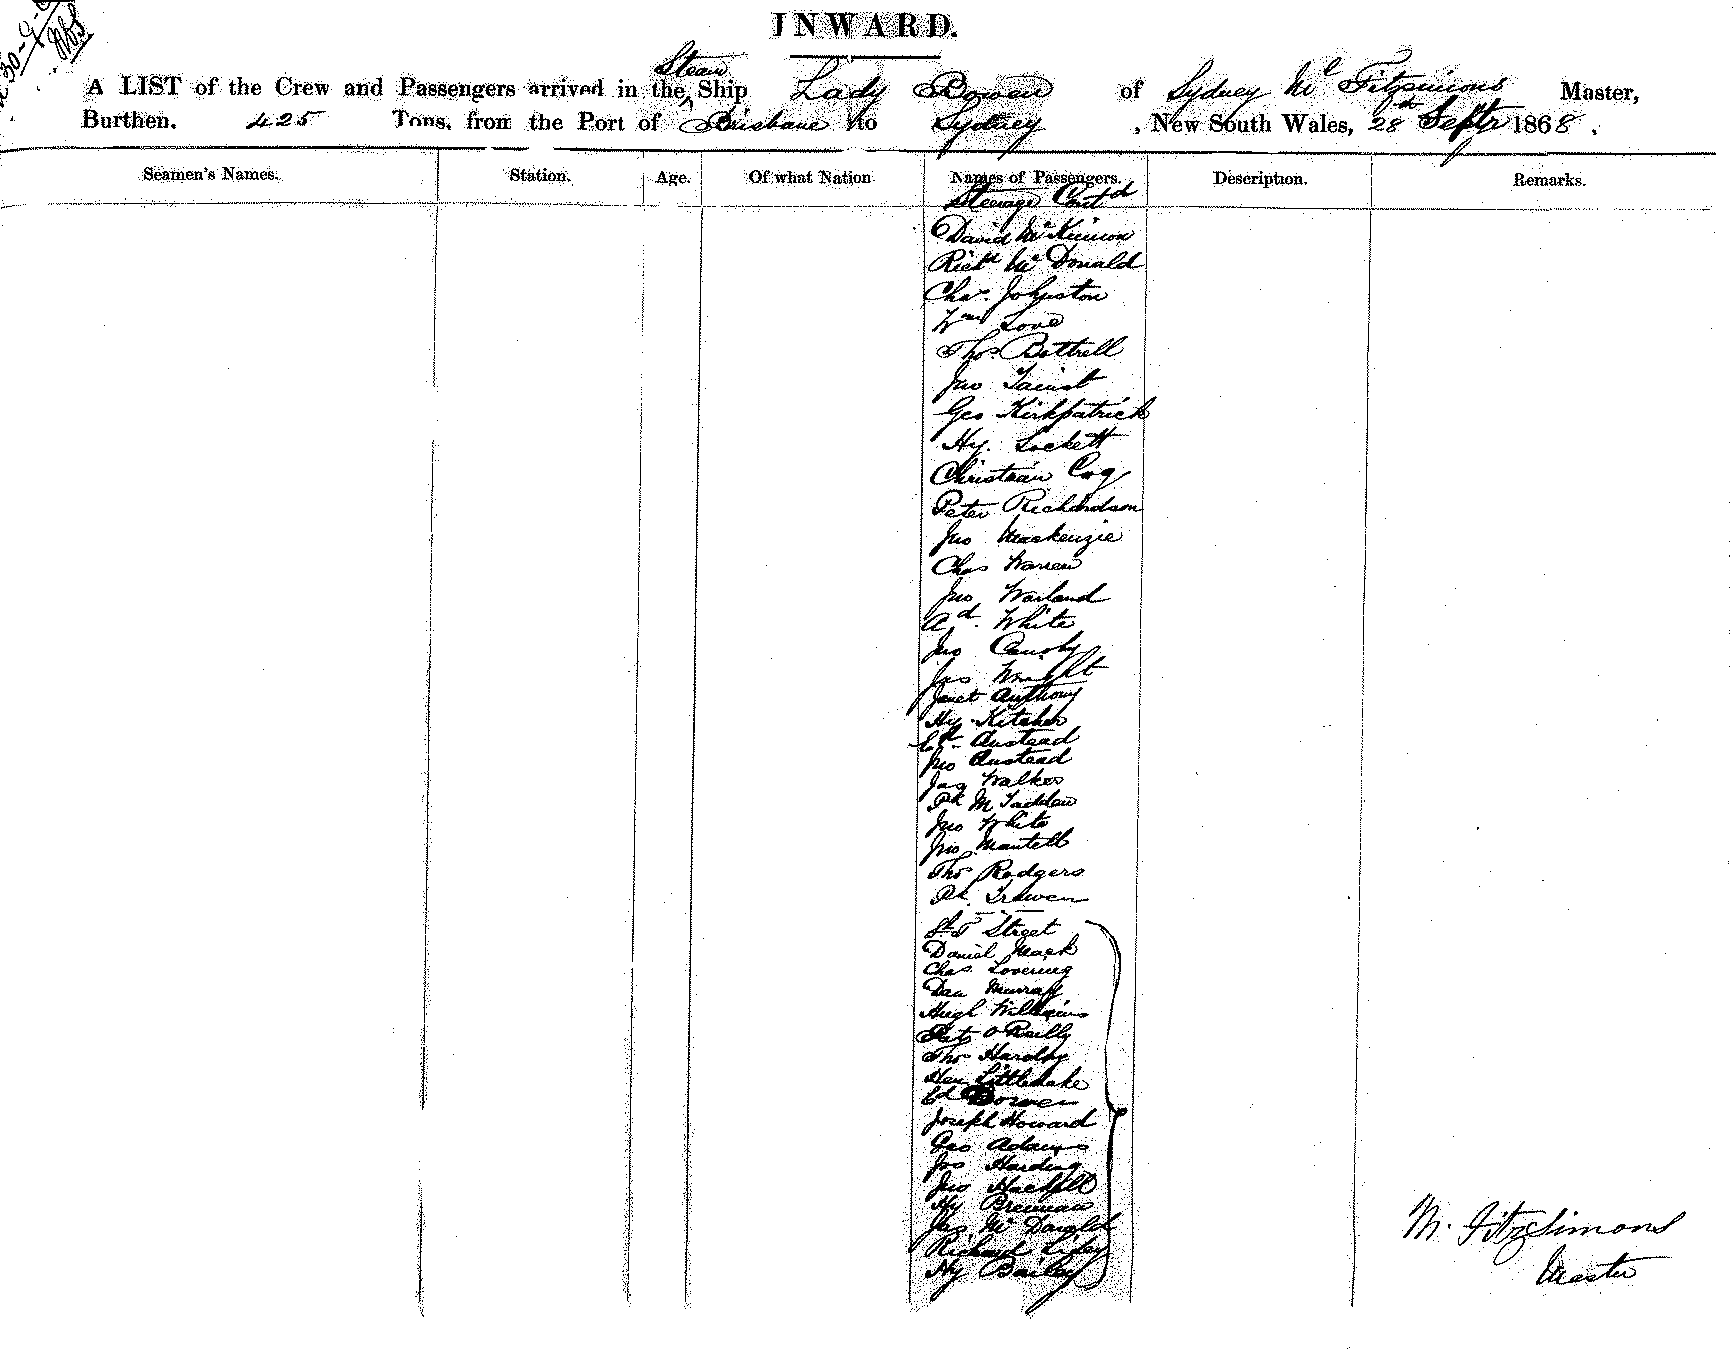 30-9-68
INWARD.
Steam
A LIST of the Crew and Passengers arrived in the ^ Ship Lady Bowen of Sydney Mc Fitzsimons Master,
Burthen. 425 Tons, from the Port of Brisbane to Sydney , New South Wales, 28th Septr 1868.
Seamen's Names. Station. Age. Of what Nation Names of Passengers. Description. Remarks.
Steerage Contd
David McKinnon
Richd McDonald
Chas. Johnston
Wm Love
Thos. Bottrell
Jno
Geo Kirkpatrick
Hy. Lockett
Christian Coy
Peter Richardson
Jno Mackenzie
Chas Warren
Jno Warland
Ad. White
Jno
Jas Wright
Janet Anthony
Hy. Kitcher
Anstead
Jno Anstead
Jas Walker
Pk
Jno White
Jno Mantell
Thos Rodgers
Pk.
Street
Daniel Mack
Chas Lovering
Dan Murray
Hugh Williams
Pat O Reilly
Thos Hardby
Hen
Ed Bowen
Joseph Howard
Geo Adams
Jos Harding
Jno
Hy Brennan
Jas McDonald
Richard
Hy Bailey
M. Fitzsimons
Master